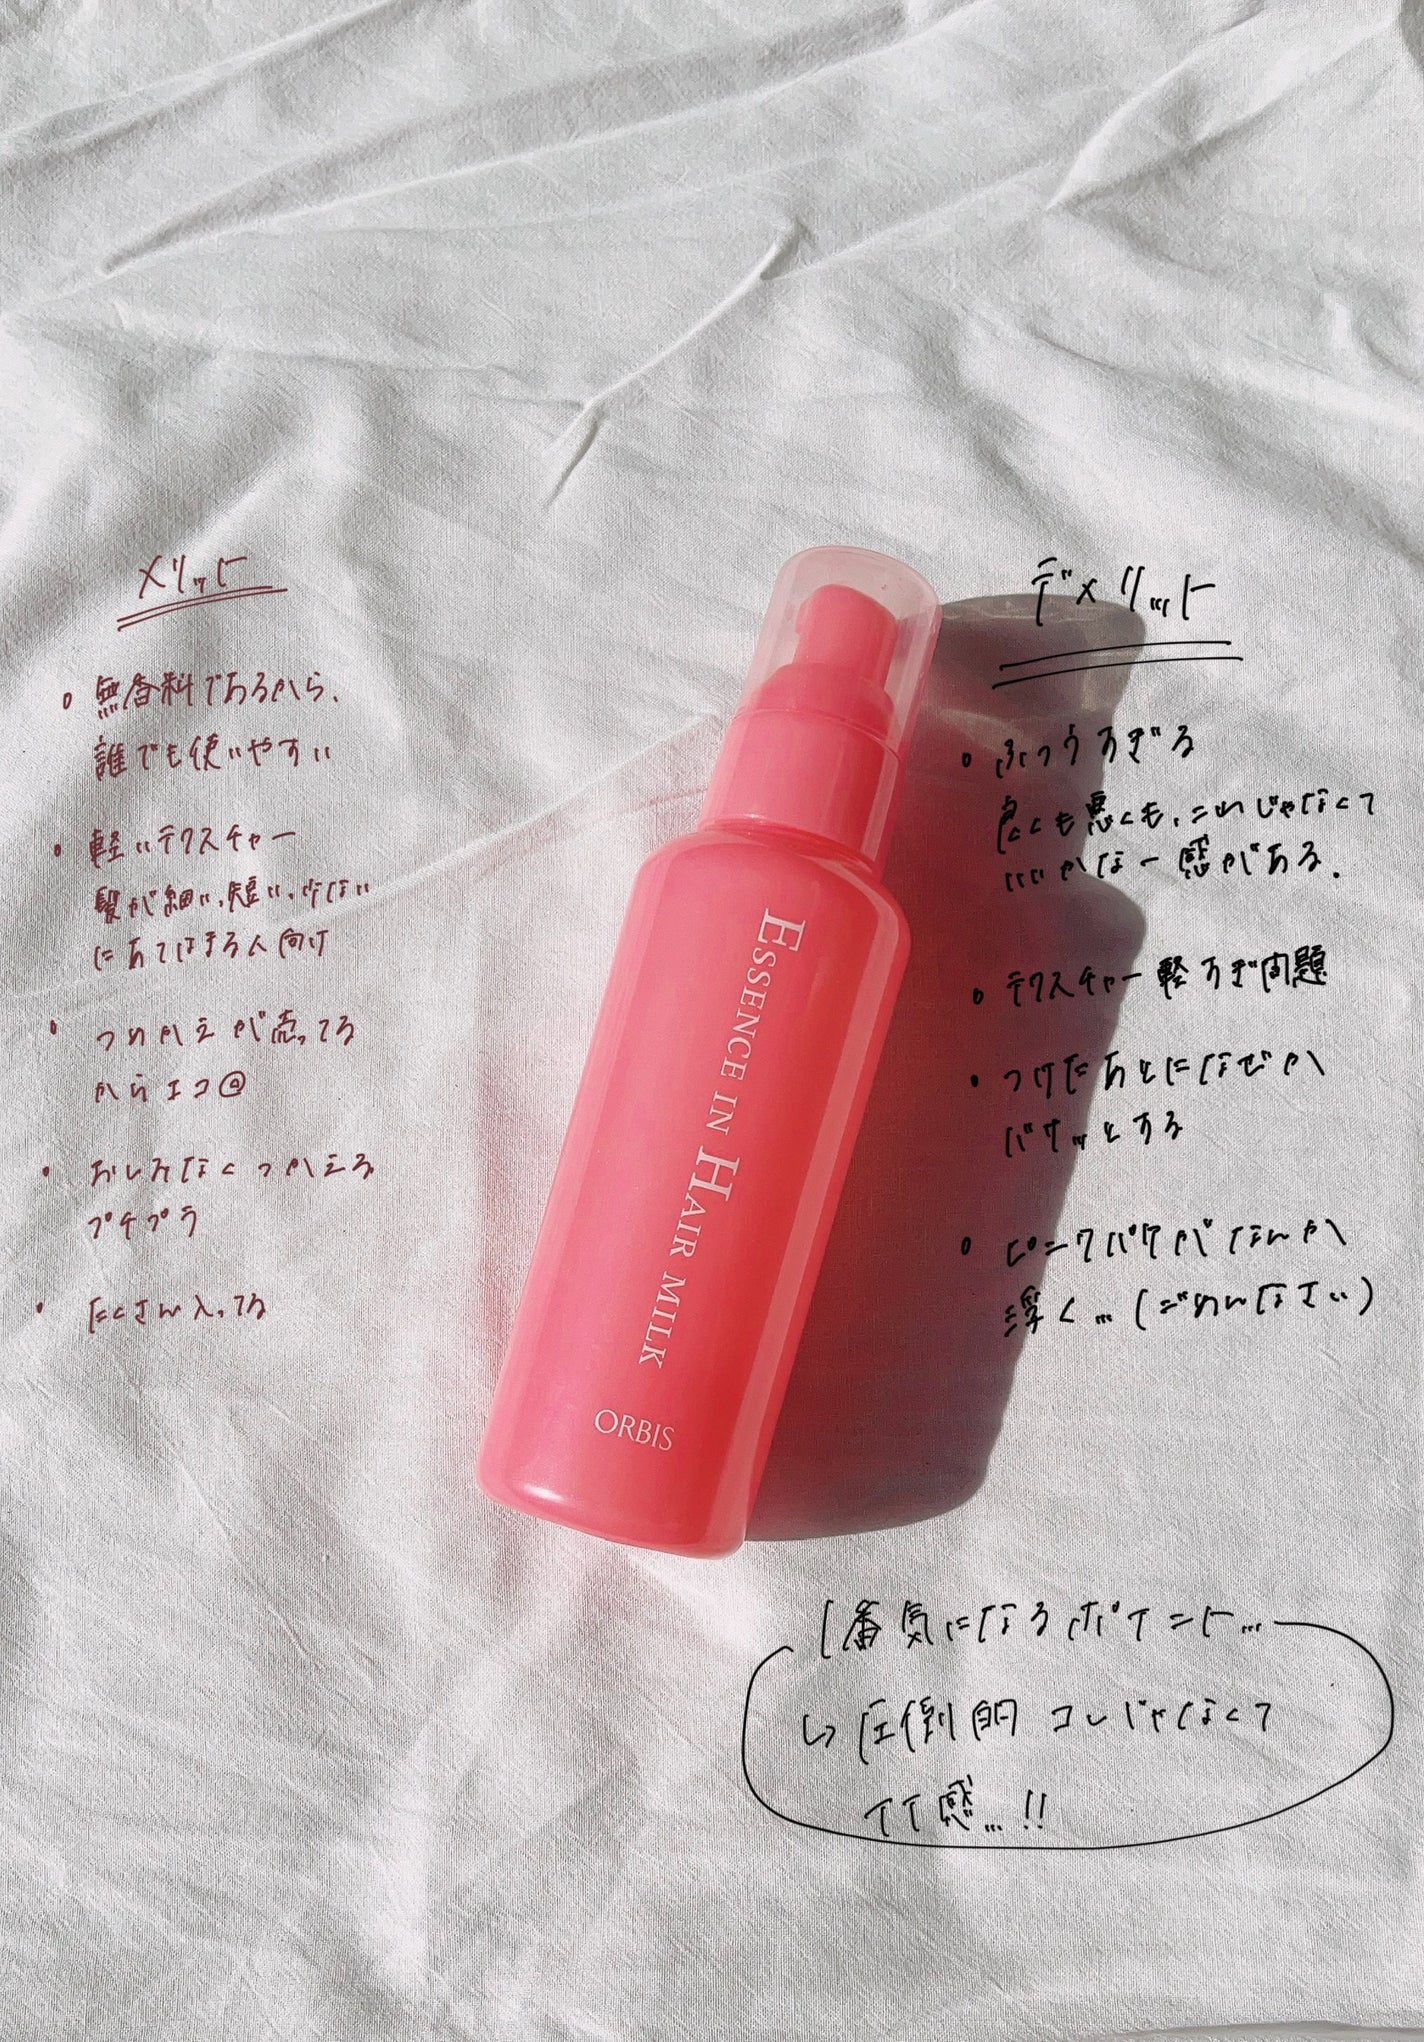 メリット
無香料であるから、
誰でも使いやすい
軽いテクスチャー
髪が細い、短い、少ない
にあてはまる人向け
つめかえが売ってる
からエコ@
おしみなくつかえる
プチプラ
たくさん入ってる
ESSENCE IN HAIR MILK
ORBIS
デメリット
ふつうすぎる
良くも悪くも、これじゃなくて
いいかなー感がある.
テクスチャー軽すぎ問題
つけたあとになぜか
パサッとする
ピンクパケがなんか
浮く…(ごめんなさい)
1番気になるポイント…
↳圧倒的コレじゃなくて
イイ感…!!